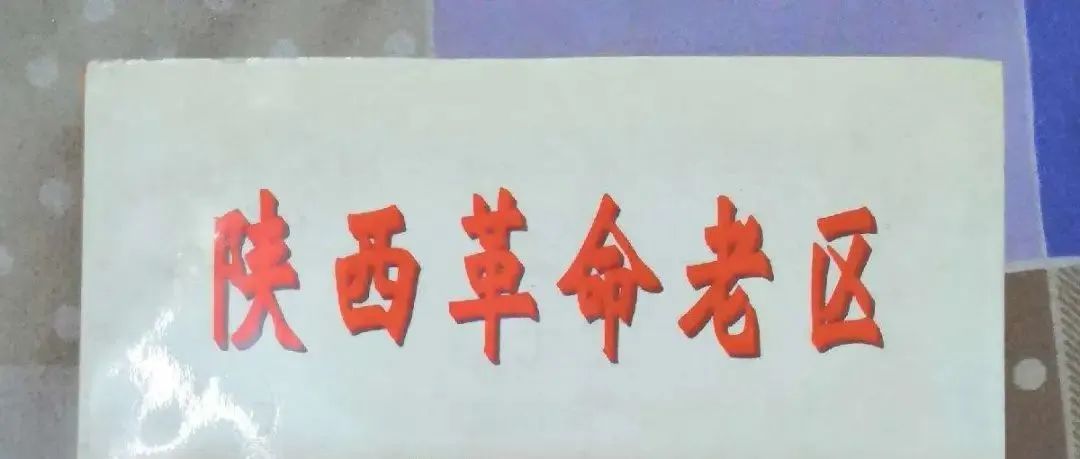 陕西革命老区